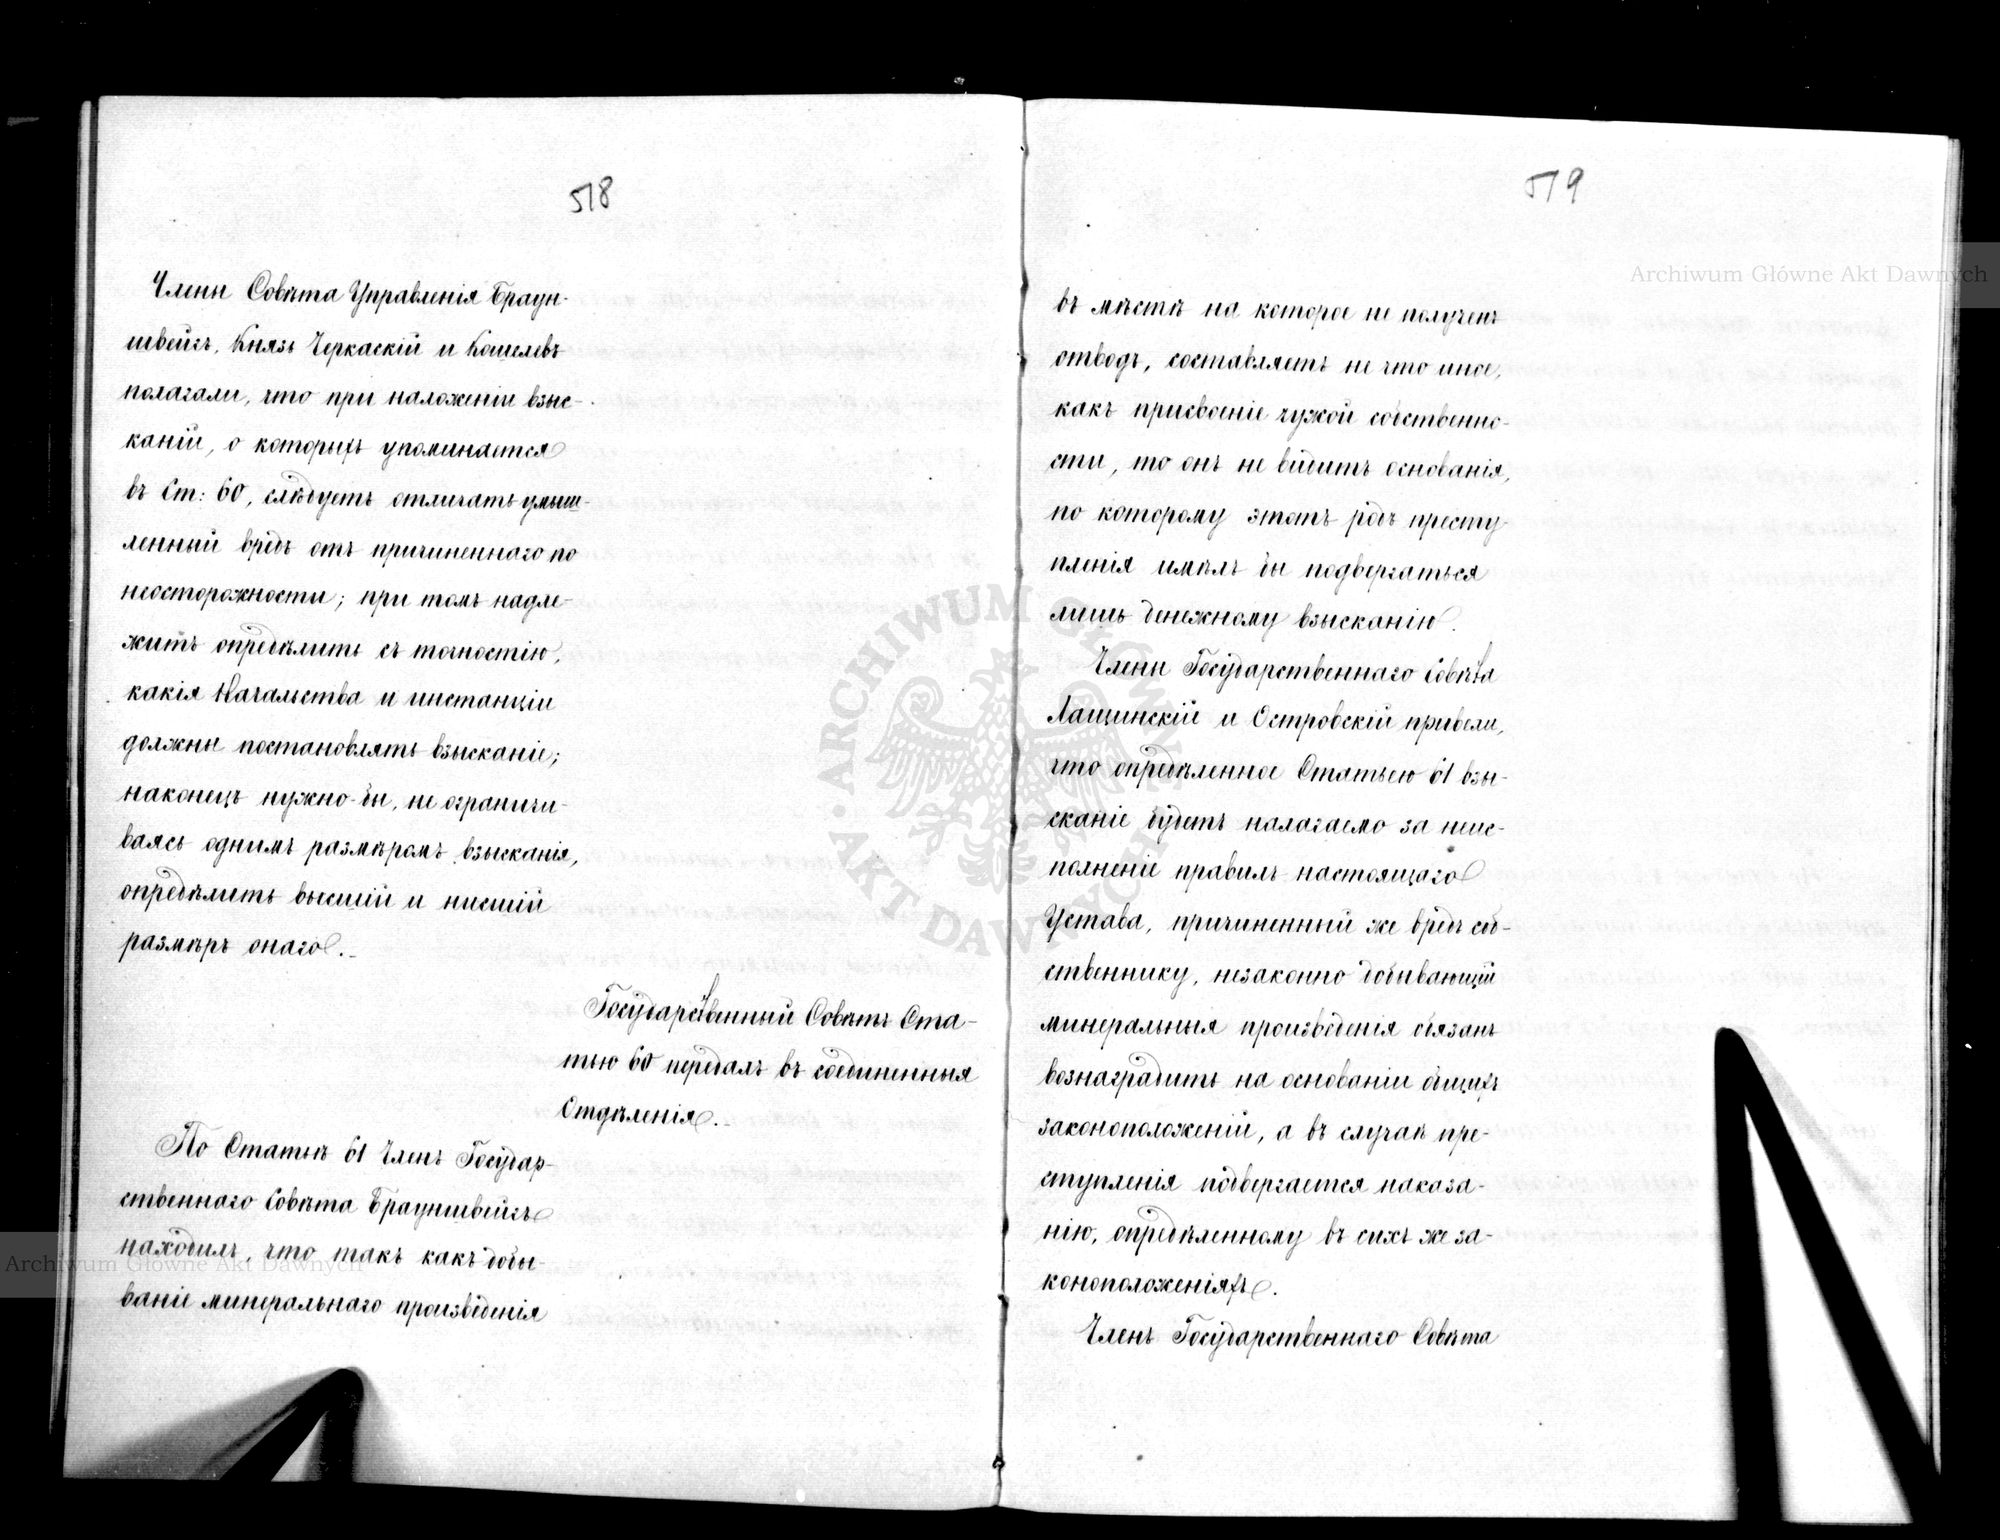 518
Члены Совѣта Управленія Браун-
швейгъ, Князь Черкаскій и Кошелевъ
полагали, что при наложеніи взыс-
каній, о которыхъ упоминается
въ Ст: 60, слѣдуетъ отличать умыш-
ленный вредъ отъ причиненнаго по
неосторожности; при томъ надле-
житъ опредѣлить съ точностію,
какія Начальства и инстанціи
должны постановлять взысканіе;
наконецъ нужно-бы, не ограничи-
ваясь однимъ размѣромъ взысканія,
опредѣлить высшій и нисшій
размѣръ онаго.
Государственный Совѣтъ Ста-
тью 60 передалъ въ соединенныя
Отдѣленія.
По Статьѣ 61 Членъ Государ-
ственнаго Совѣта Брауншвейгъ
находилъ, что такъ какъ добы-
ваніе минеральнаго произведенія
519
въ мѣстѣ на которое не полученъ
отводъ, составляетъ не что иное,
какъ присвоеніе чужой собственно-
сти, то онъ не видитъ основанія,
по которому этотъ родъ престу-
пленія имѣлъ бы подвергаться
лишь денежному взысканію.
Члены Государственнаго Совѣта
Лащинскій и Островскій привели,
что опредѣленное Статьею 61 взы-
сканіе будетъ налагаемо за неис-
полненіе правилъ настоящаго
Устава, причиненный же вредъ соб-
ственнику, незаконно добывающій
минеральныя произведенія обязанъ
вознаградить на основаніи общихъ
законоположеній, а въ случаѣ пре-
ступленія подвергается наказа-
нію, опредѣленному въ сихъ же за-
коноположеніяхъ.
Членъ Государственнаго Совѣта
Archiwum Główne Akt Dawnych
Archiwum Główne Akt Dawnych
ARCHIWUM GŁÓWNE AKT DAWNYCH